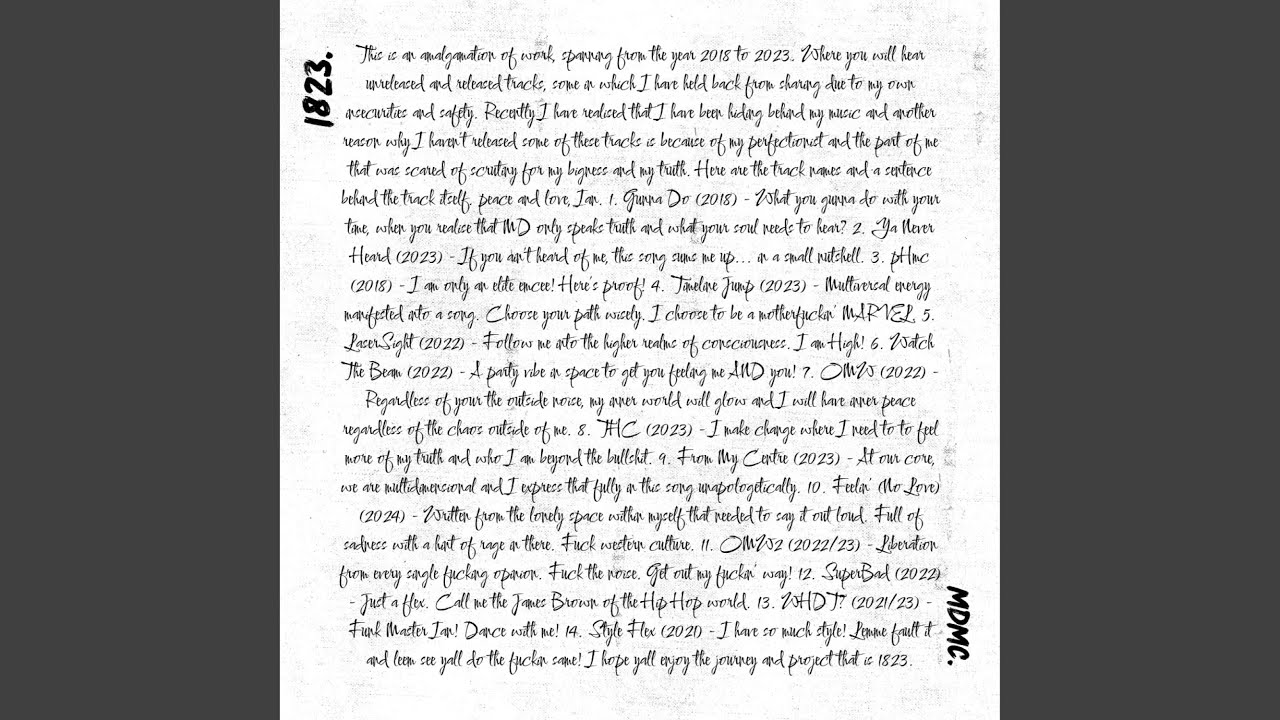 1823.
This is an amalgamation of work, spanning from the year 2018 to 2023. Where you will hear
unreleased and released tracks, some in which I have held back from sharing due to my own
insecurities and safety. Recently I have realised that I have been hiding behind my music and another
reason why I haven't released some of these tracks is because of my perfectionist and the part of me
that was scared of scrutiny for my bigness and my truth. Here are the track names and a sentence
behind the track itself. peace and love, Jan. 1. Gunna Do (2018) - What you gunna do with your
time, when you realise that MD only speaks truth and what your soul needs to hear? 2. Ya Never
Heard (2023) - If you ain't heard of me, this song sums me up... in a small nutshell. 3. pHmc
(2018) - I am only an elite emcee! Here's proof! 4. Timeline Jump (2023) - Multiversal energy
manifested into a song. Choose your path wisely. I choose to be a motherfuckin' MARVEL. 5.
LaserSight (2022) - Follow me into the higher realms of consciousness. I am High! 6. Watch
The Beam (2022) - A party vibe in space to get you feeling me AND you! 7. OMW (2022) -
Regardless of your the outside noise, my inner world will glow and I will have inner peace
regardless of the chaos outside of me. 8. THC (2023) - I make change where I need to to feel
more of my truth and who I am beyond the bullshit. 9. From My Centre (2023) - At our core,
we are multidimensional and I express that fully in this song unapologetically. 10. Feelin' (No Love)
(2024) - Written from the lonely space within myself that needed to say it out loud. Full of
sadness with a hint of rage in there. Fuck western culture. 11. OMW2 (2022/23) - Liberation
from every single fucking opinion. Fuck the noise. Get out my fuckin' way! 12. SuperBad (2022)
- Just a flex. Call me the James Brown of the Hip Hop world. 13. WHDT? (2021/23) -
Funk Master Jan! Dance with me! 14. Style Flex (2021) - I have so much style! Lemme fault it
and leem see yall do the fuckin same! I hope yall enjoy the journey and project that is 1823.
MDMC.